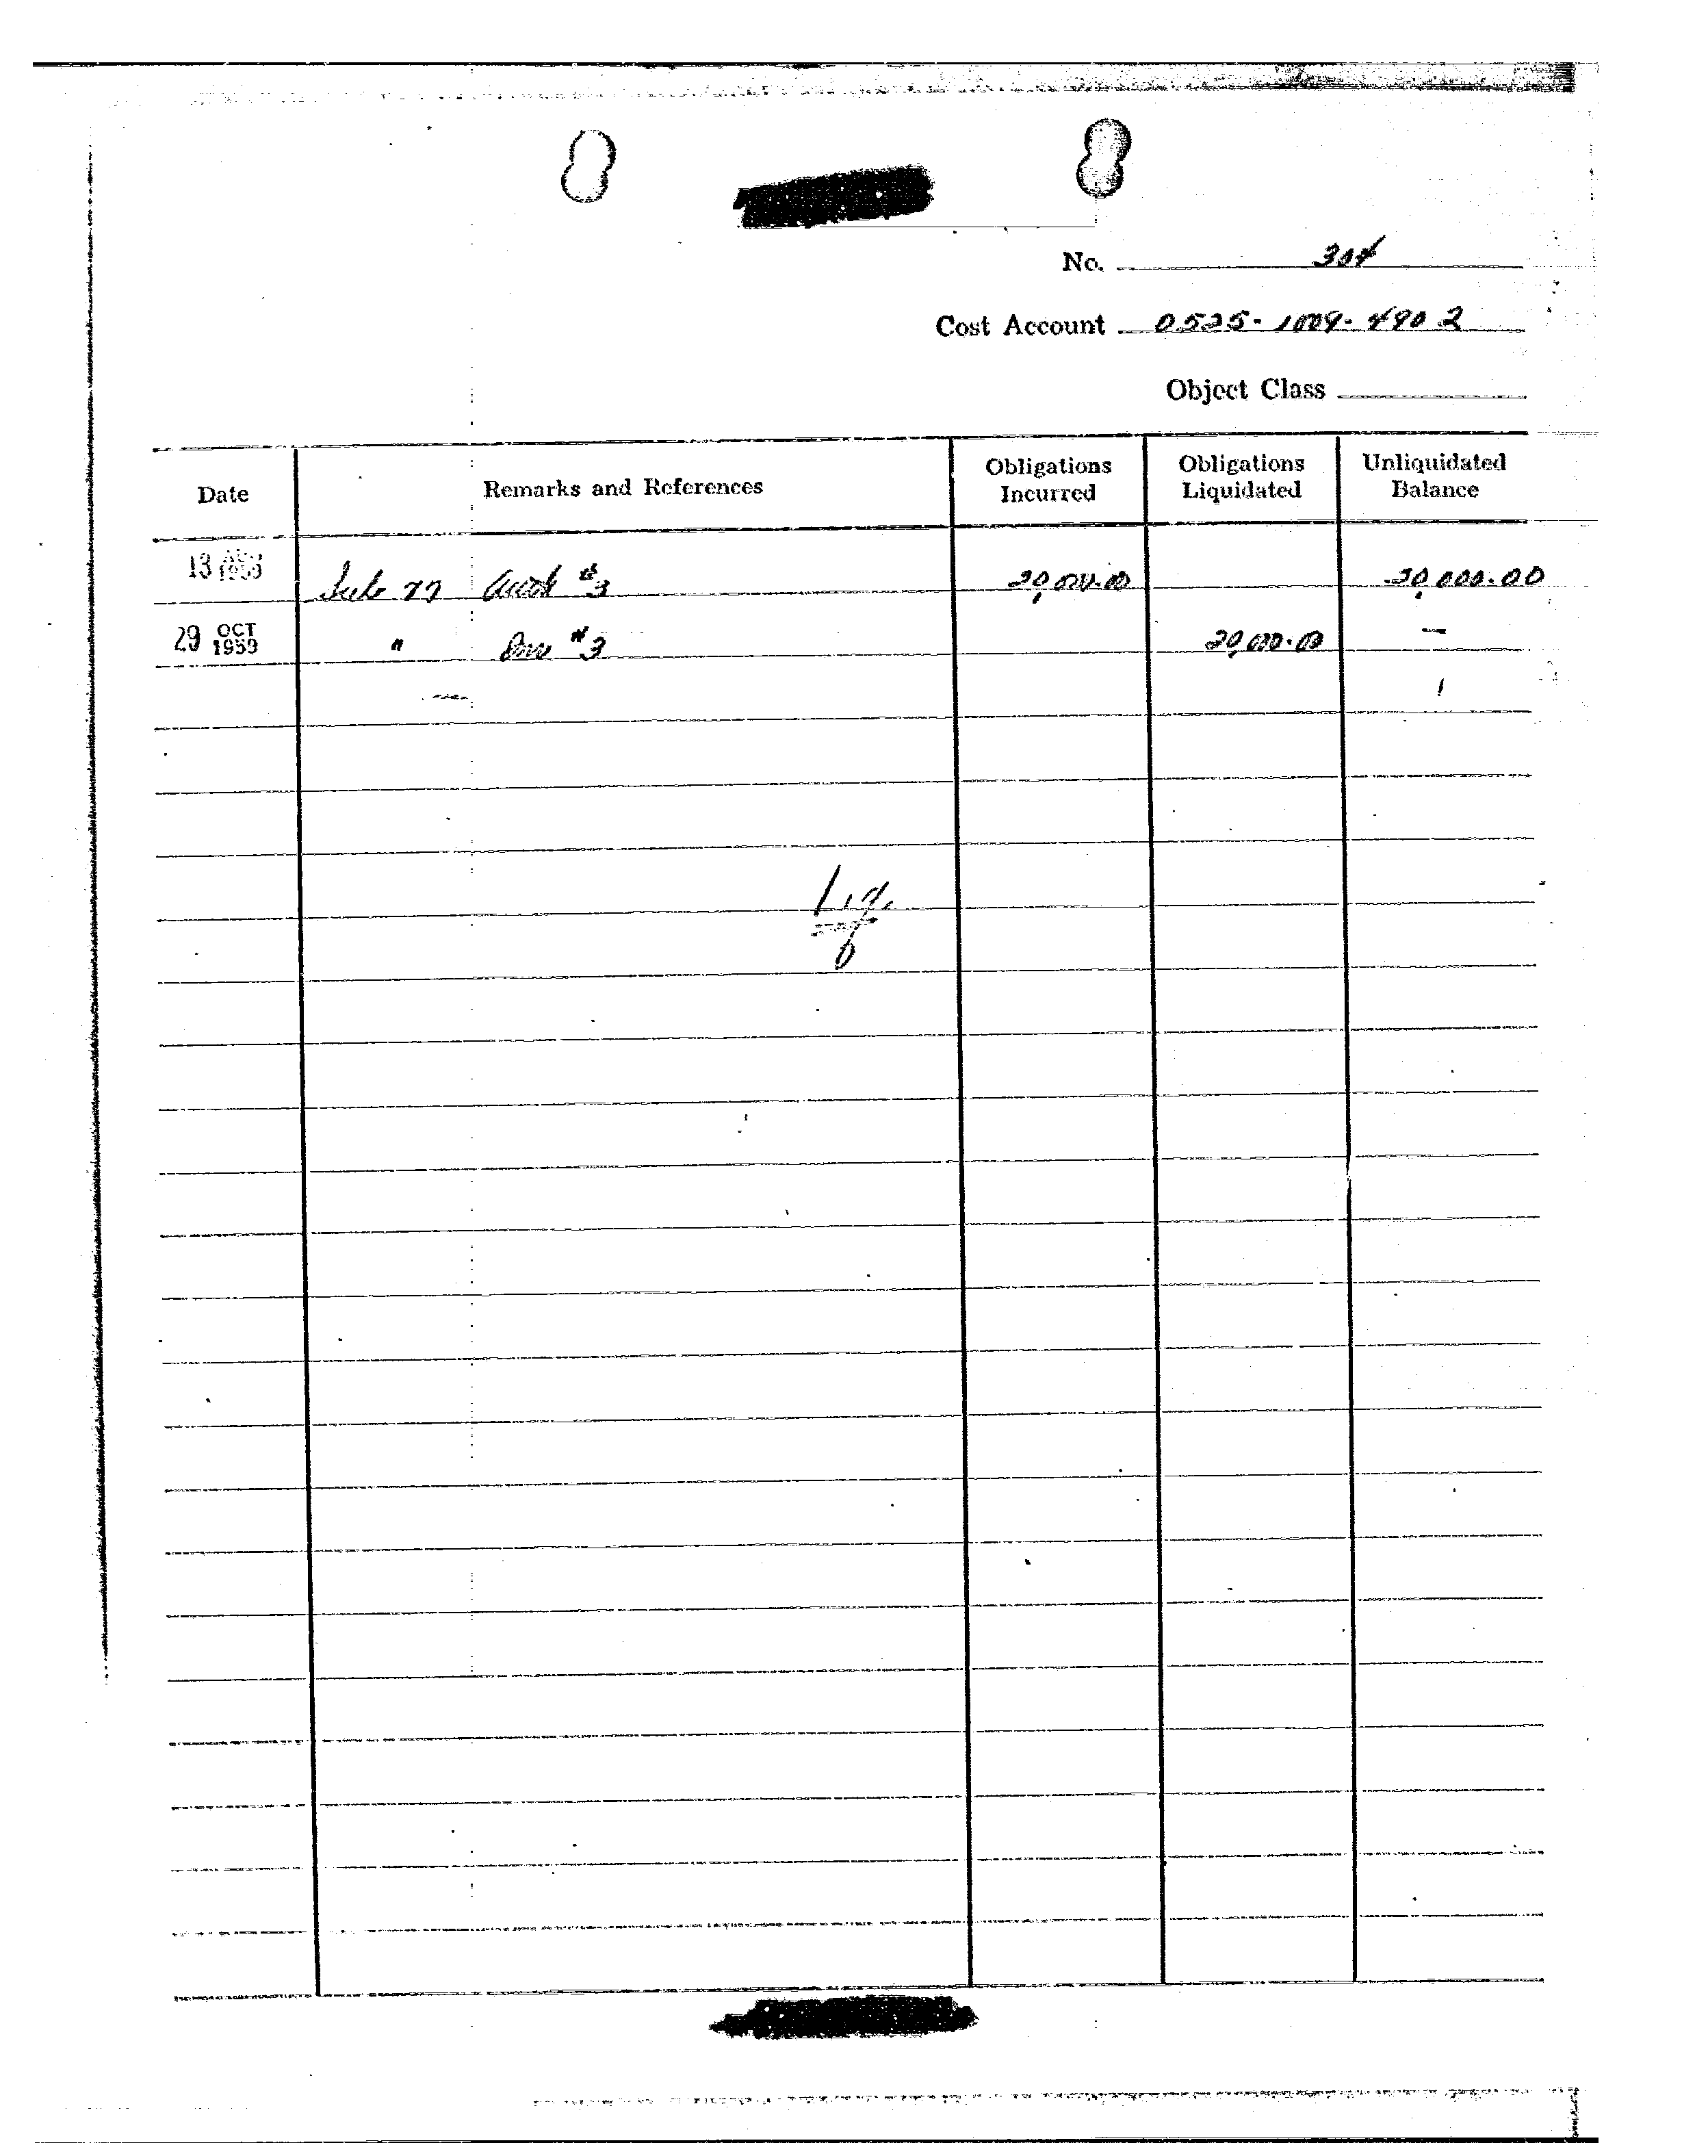 No. 304
Cost Account 0525-1009-4902
Object Class
Date Remarks and References Obligations Incurred Obligations Liquidated Unliquidated Balance
13 1959 Sub 77 #3 20,000.00 20,000.00
29 OCT 1959 " Inv #3 20,000.00 —
Liq.